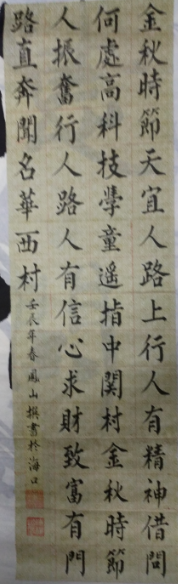 金秋時節天宜人路上行人有精神借問
何處高科技學童遥指中関村金秋時節
人振奮行人路人有信心求財致富有門
路直奔聞名華西村
壬辰年春鳳山撰書於海口